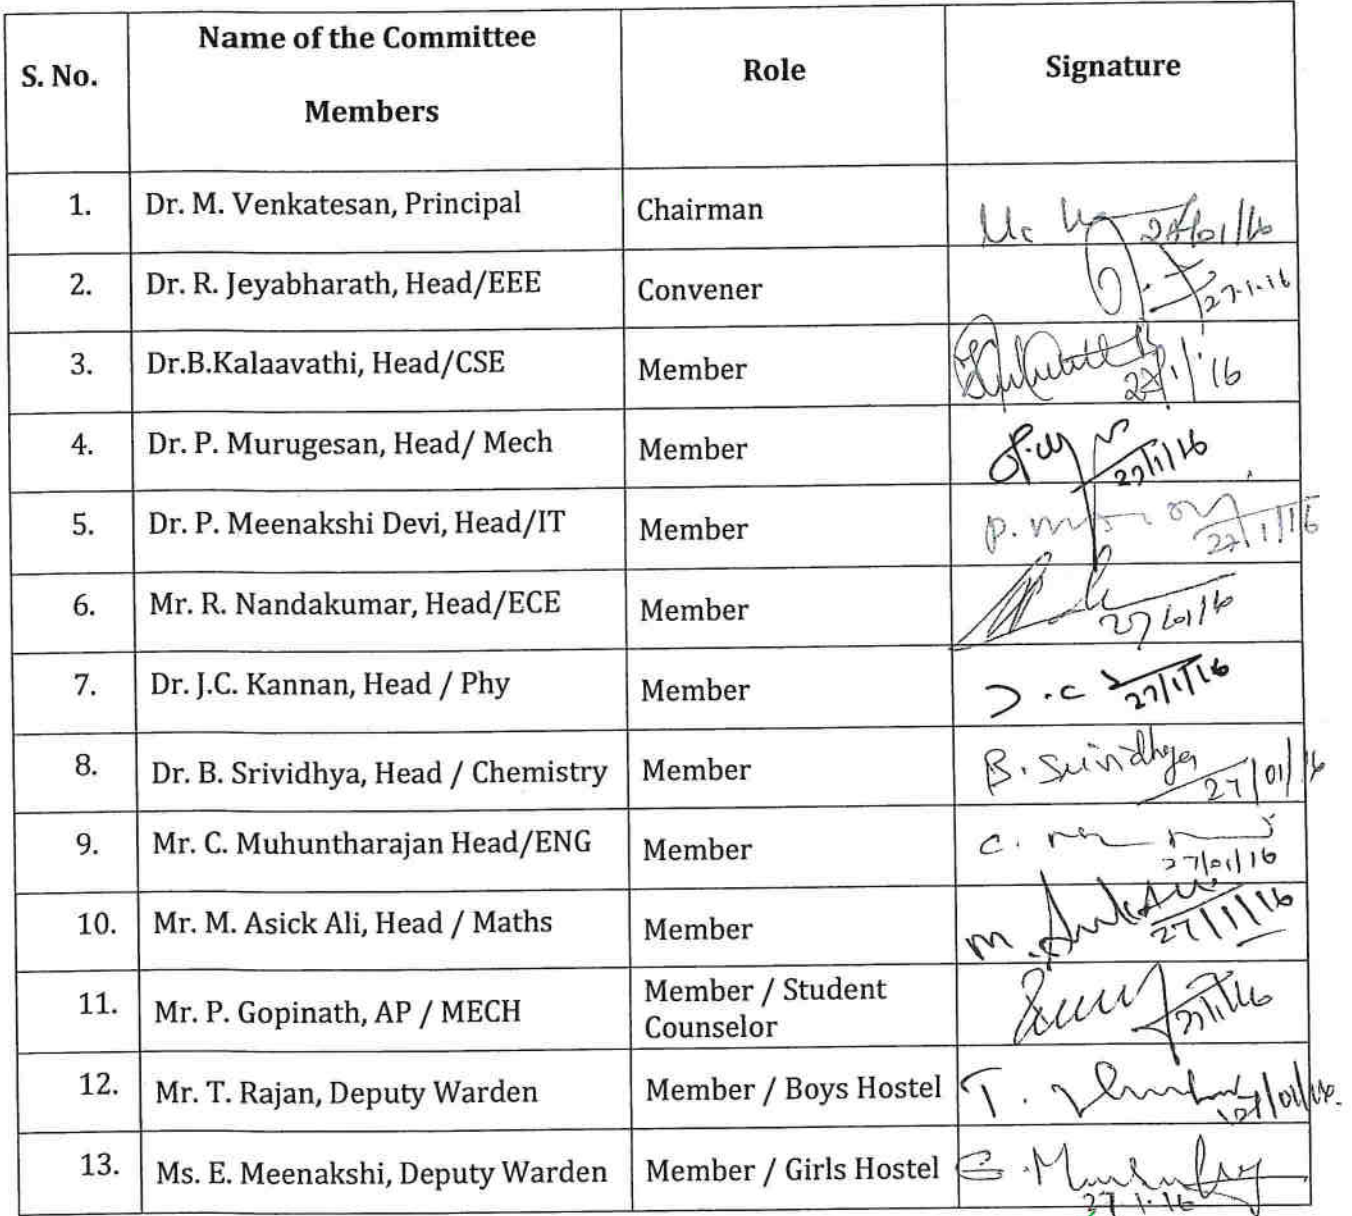 S. No.
Name of the Committee
Members
Role
Signature
1.
Dr. M. Venkatesan, Principal
Chairman
2.
Dr. R. Jeyabharath, Head/EEE
Convener
27.1.16
3.
Dr.B.Kalaavathi, Head/CSE
Member
27/1/'16
4.
Dr. P. Murugesan, Head/ Mech
Member
27/1/16
5.
Dr. P. Meenakshi Devi, Head/IT
Member
27/1/16
6.
Mr. R. Nandakumar, Head/ECE
Member
27/01/16
7.
Dr. J.C. Kannan, Head / Phy
Member
J.C
27/1/16
8.
Dr. B. Srividhya, Head / Chemistry
Member
B. Srividhya
27/01/16
9.
Mr. C. Muhuntharajan Head/ENG
Member
27/01/16
10.
Mr. M. Asick Ali, Head / Maths
Member
27/1/16
11.
Mr. P. Gopinath, AP / MECH
Member / Student
Counselor
27/1/16
12.
Mr. T. Rajan, Deputy Warden
Member / Boys Hostel
13.
Ms. E. Meenakshi, Deputy Warden
Member / Girls Hostel
27.1.16